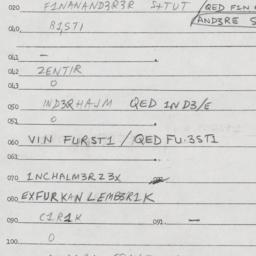 020 F1NANAND3R3R S+TUT / QED F1N
AND3RE S
040. B1,ST1
041 –
042 2ENT1R
043 0
050 IND3RHAJM QED 1ND3/E
051 0
060 V1N FURST1 / QED FU.3ST1
061
070 1NCHALM3RZ3X
080 EXFURKAN LEMB3R1K
090 C1R1K 091. –
100 0